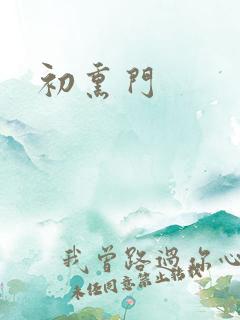 初熏門
我曾路過你心
未经同意禁止転載